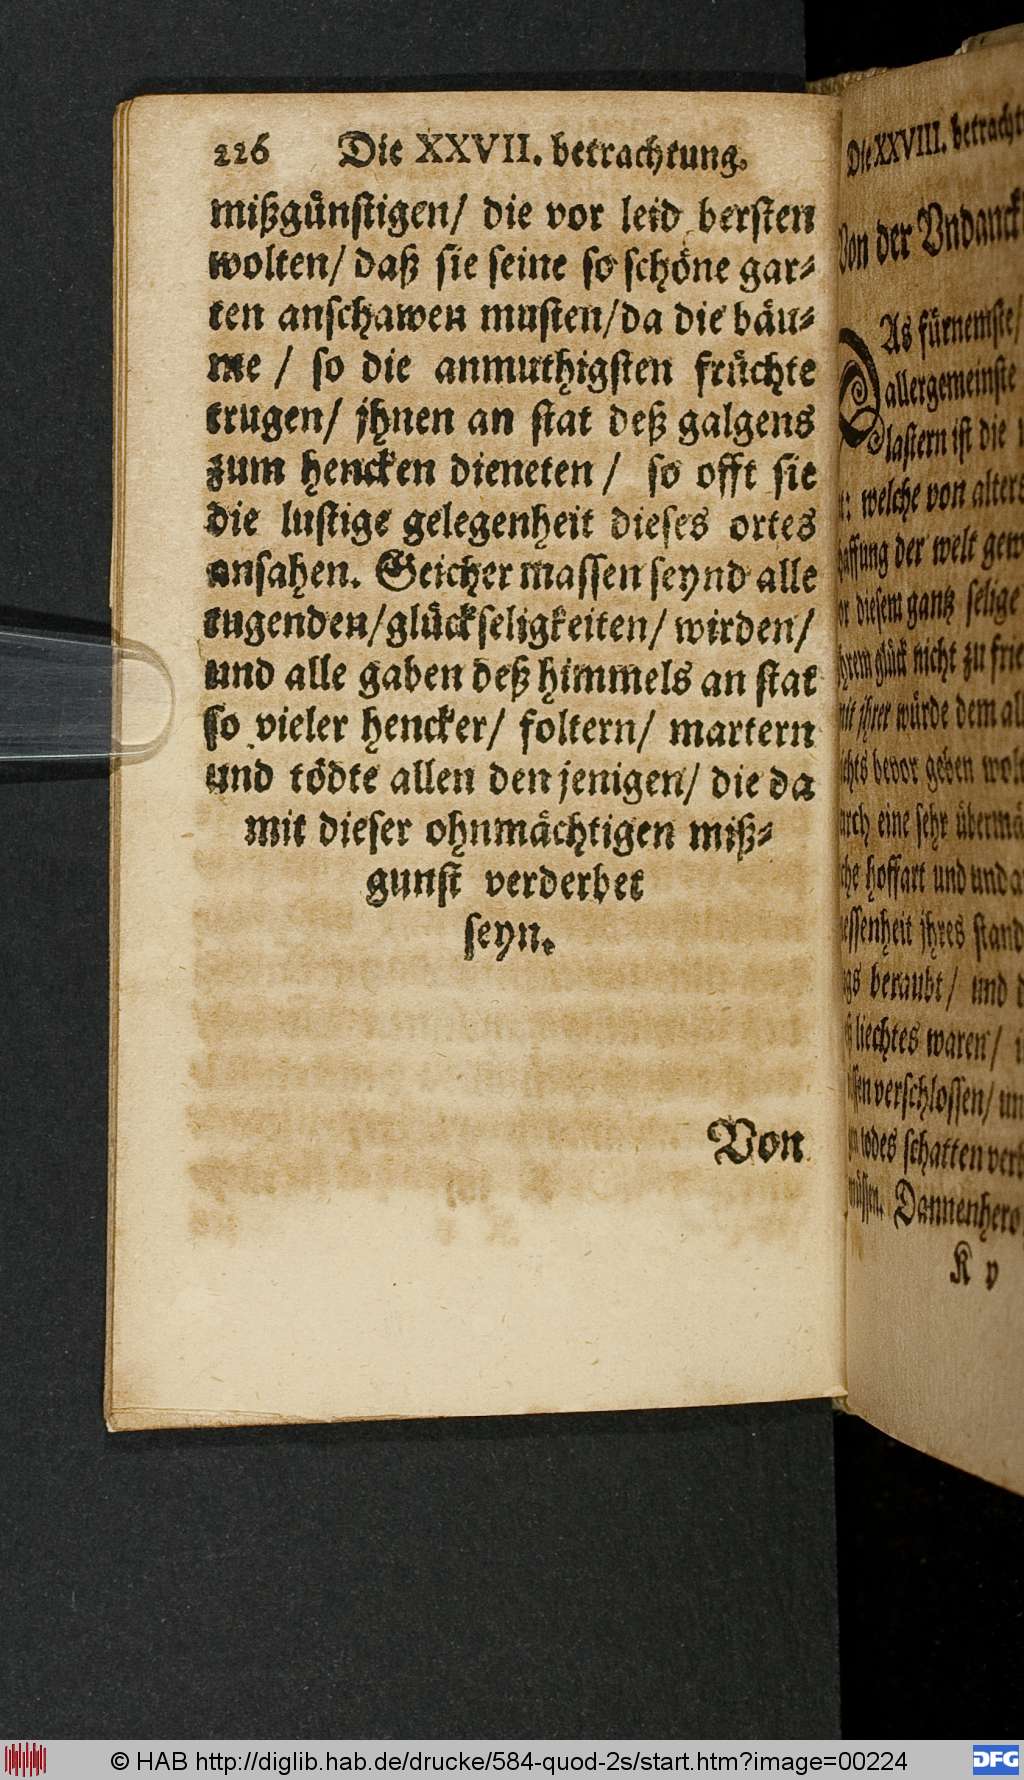 226 Die XXVII. betrachtung.
mißgünstigen/ die vor leid bersten
wolten/ daß sie seine so schöne gar-
ten anschawen musten/da die bäu-
me / so die anmuthigsten früchte
trugen/ jhnen an stat deß galgens
zum hencken dieneten / so offt sie
die lustige gelegenheit dieses ortes
ansahen. Geicher massen seynd alle
tugenden/glückseligkeiten/ wirden/
und alle gaben deß himmels an stat
so vieler hencker/ foltern/ martern
und tödte allen den jenigen/ die da
mit dieser ohnmächtigen miß-
gunst verderbet
seyn.
Von
Die XXVIII.
Von der Vndanck
As fürnemste/
allergemeinste
lastern ist die
welche von alters
der welt
diesem gantz selige
glück nicht zu
jhrer würde dem
bevor geben
eine sehr
hoffart und und
jhres
beraubt/ und
liechtes waren/
verschlossen/
todes schatten
müssen. Dannenhero
K v
© HAB http://diglib.hab.de/drucke/584-quod-2s/start.htm?image=00224
DFG